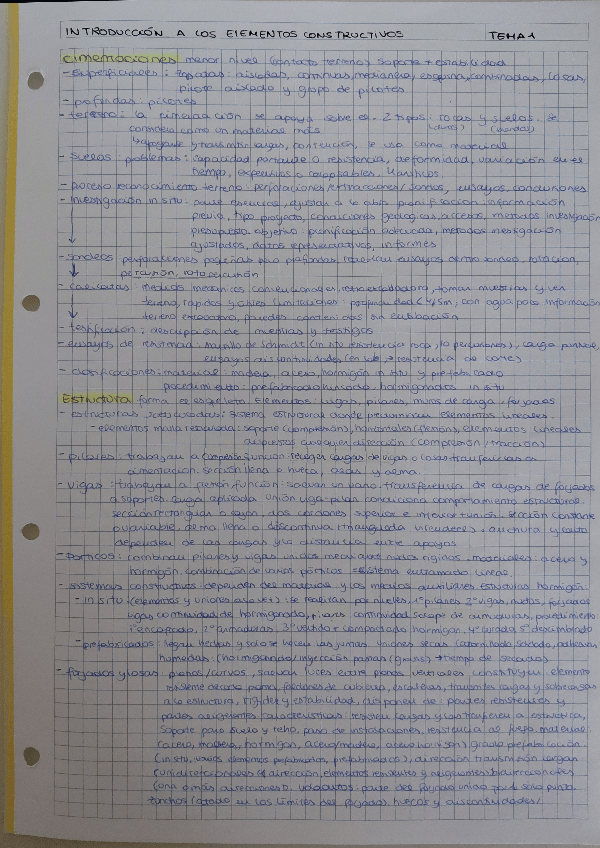 INTRODUCCIÓN A LOS ELEMENTOS CONSTRUCTIVOS TEMA 1
cimentaciones menor nivel (contacto terreno) soporte + estabilidad
- superficiales: zapatas: aisladas, continuas, medianera, esquina, combinadas, losas,
pilote aislado y grupo de pilotes
- profundas: pilotes
- terreno: la cimentación se apoya sobre el. 2 tipos: rocas y suelos. se
(duros) (blandos)
comporta como un material más
apoyante y transmite cargas, contención, se usa como material
- suelos: problemas: capacidad portante o resistencia, deformidad, variación en el
tiempo, expansivos o colapsables.
- proceso reconocimiento terreno: perforaciones/extracciones/sondeos, ensayos, conclusiones
- Investigación in situ: planificación: información
previa, tipo proyecto, condiciones geológicas, accesos, metodos investigación
presupuesto. objetivo: planificación adecuada, metodos investigación
ajustados, datos representativos, informes
- sondeos perforaciones pequeñas pero profundas, ensayos dentro sondeo, rotación,
percusión, rotopercusión
- calicatas: medios mecanicos convencionales, retroexcavadora, tomar muestras y ver
terreno, rapidos y utiles limitaciones: profundidad < 4,5m, con agua poca información
terreno excavable, paredes contenidas sin entibación
- testificación: descripción de muestras y testigos
- ensayos de resistencia: martillo de schmidt (in situ resistencia roca, lo percusiones), carga puntual,
ensayos discontinuidades (en lab. → resistencia de corte)
- clasificaciones: material: madera, acero, hormigón in situ y prefabricado
procedimiento: prefabricado hincado, hormigonados in situ
Estructura forma el esqueleto elementos: vigas, pilares, muros de carga, forjados
- estructuras reticuladas: sistema estructural donde predominan elementos lineales.
- elementos malla reticulada: soporte (compresión), horizontales (flexión), elementos lineales
dispuestos cualquier dirección (compresión/tracción)
- pilares: trabajan a compresión función: recoger cargas de vigas o losas transferirlas a
cimentación. sección llena o hueca,
- vigas: trabajan a flexión función: salvan un vano. transferencia de cargas de forjados
a soportes. carga aplicada unión viga-pilar condiciona comportamiento estructural.
sección rectangular o cajón, dos cordones superior e inferior + unión. sección constante
o variable, alma llena o discontinua (triangulada virendeel). anchura y canto
dependen de las cargas y la distancia entre apoyos
- Pórticos: combinan pilares y vigas unidos mediante nudos rigidos. materiales: acero y
hormigón. combinación de varios pórticos → sistema entramado lineal.
- sistemas constructivos dependen del material y los medios auxiliares. Estructuras hormigón:
- in situ (elementos y uniones a la vez): se realizan por niveles, 1º pilares 2º vigas, nudos, forjados
vigas continuidad de hormigonado, pilares continuidad solape de armaduras, procedimiento
1º encofrado, 2º armaduras, 3º vertido + compactado hormigón, 4º curado, 5º desencofrado
- prefabricados: llegan hechos y solo se hacen las juntas. Uniones secas (atornillado, soldado, adhesivos)
humedas: (hormigonado/inyección juntas (grout) + tiempo de secado
- forjados y losas: planos/curvos, salvan luces entre planos verticales. constituyen: elemento
resistente de cada planta, faldones de cubierta, escaleras, transmiten cargas y sobrecargas
a la estructura, rigidez y estabilidad, disponen de partes resistentes y
partes aligerantes características: resisten cargas y las transfieren a estructura,
soporte para suelo y techo, paso de instalaciones, resistencia al fuego. material
(acero, madera, hormigón, acero/madera, acero/hormigón) grado prefabricación
(in situ, varios elementos prefabricados, prefabricados), dirección transmisión cargas
(unidireccionales (1 dirección, elementos resistentes y aligerantes) bidireccionales
(una o más direcciones). voladizos: parte del forjado unido por un solo punto
zunchos (atado en los límites del forjado). huecos y discontinuidades/